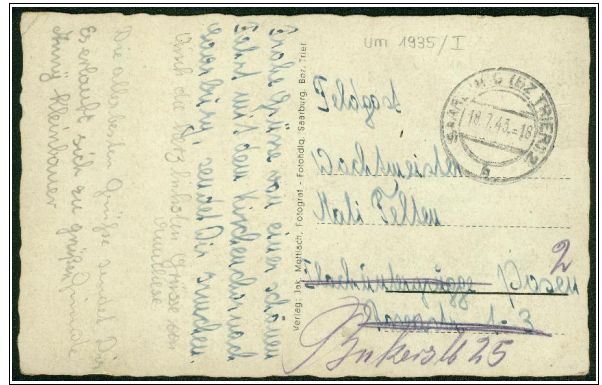 um 1935/I
SAARBURG (BZ TRIER) 2
18.7.43.-18
b
Feldpost
Wachtmeister
Mati Felten
Posen 2
1-3
25
Verlag: Jak. Mettlach, Fotograf - Fotohdlg. Saarburg, Bez. Trier
Frohe Grüße von einer schönen
Fahrt mit dem Kirchenchor nach
Saarburg, sendet Dir
Auch die herzlichsten Grüsse von
Anneliese
Die allerbesten Grüße sendet Dir
Es erlaubt sich zu grüßen
Änny Kleinbauer